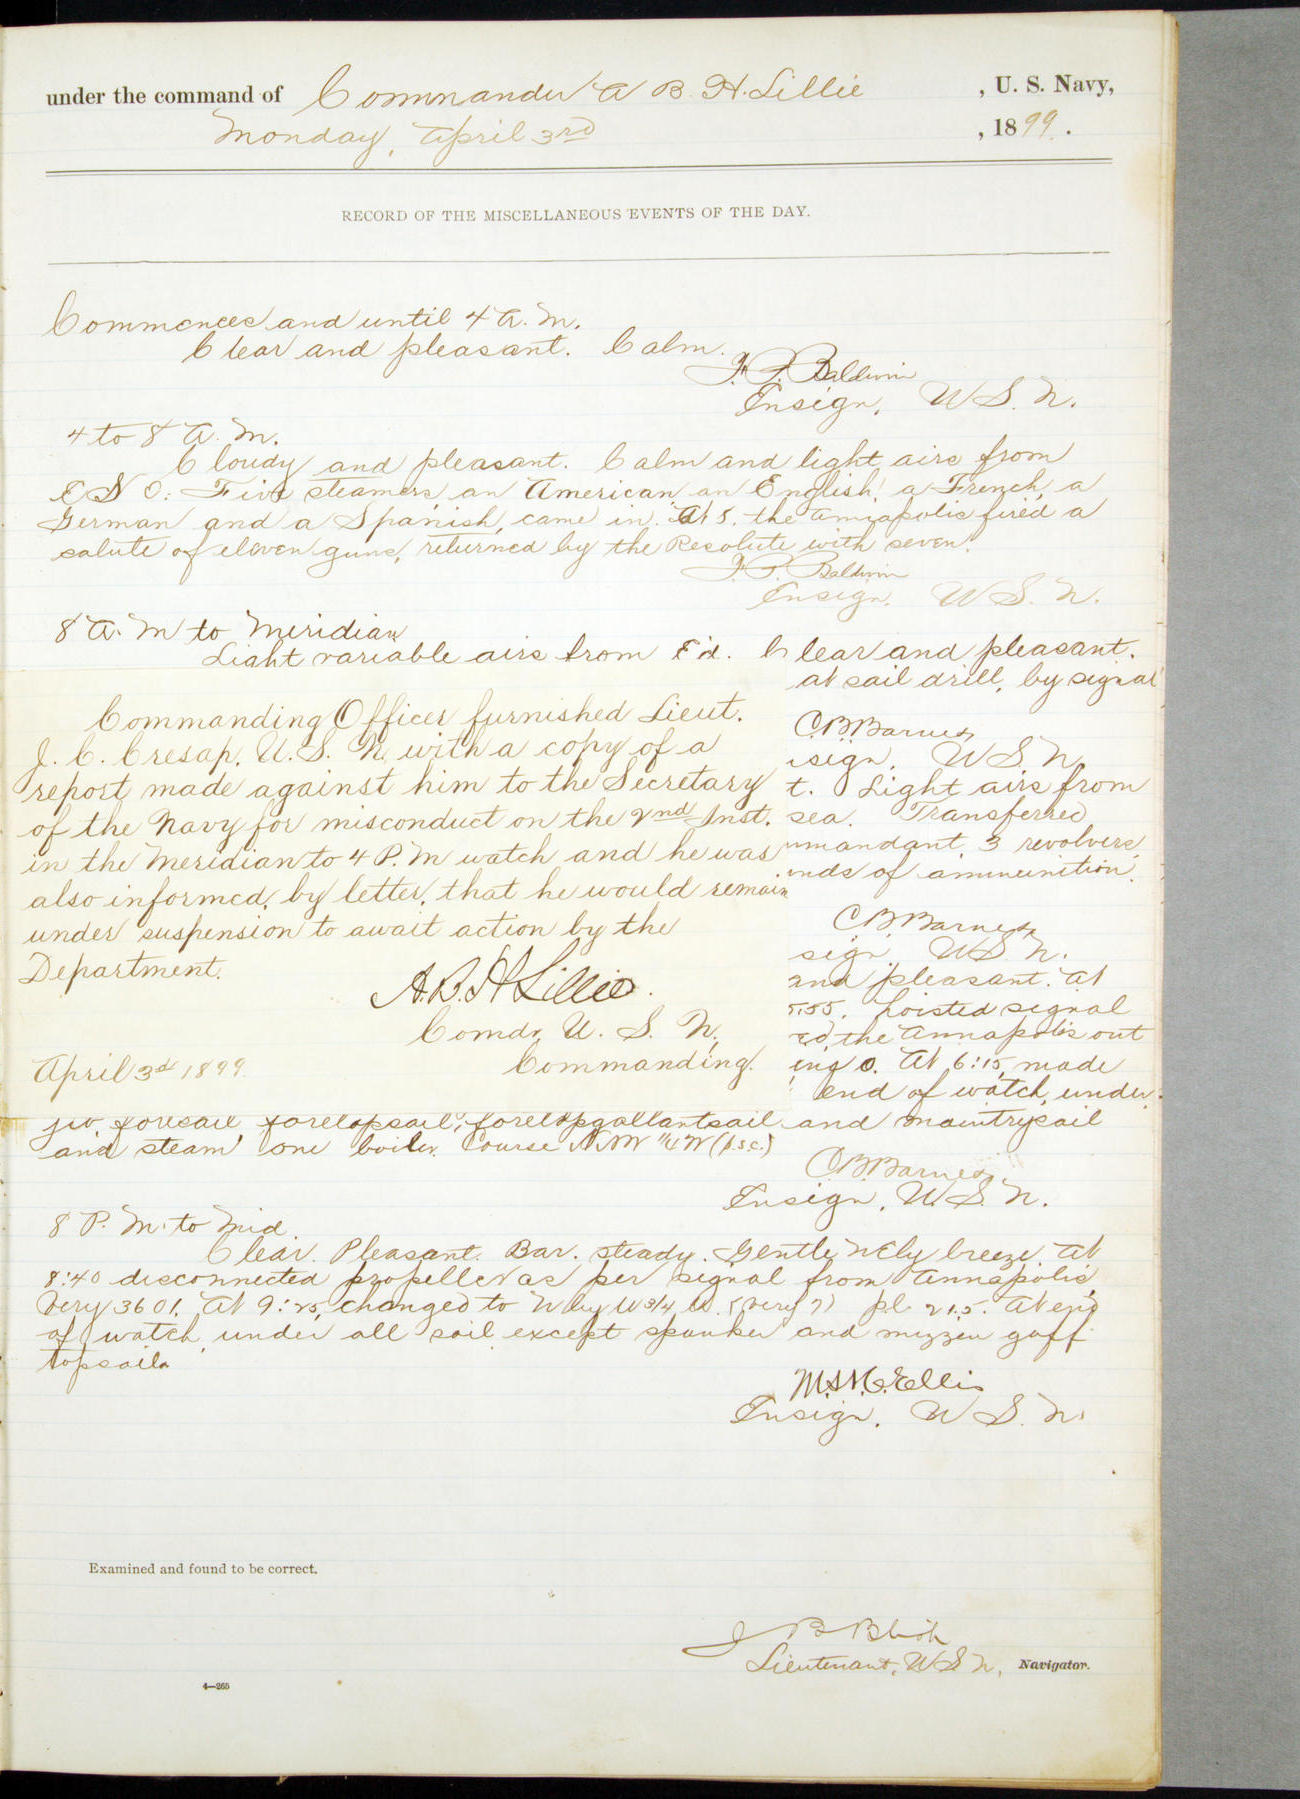 under the command of Commander A B. H. Lillie, U. S. Navy,
Monday, April 3rd, 1899.
RECORD OF THE MISCELLANEOUS EVENTS OF THE DAY.
Commences and until 4 A. M.
Clear and pleasant. Calm.
Baldwin
Ensign, U S. N.
4 to 8 A. M.
Cloudy and pleasant. Calm and light airs from
Five steamers, an American, an English, a French, a
German and a Spanish, came in. At 8. the Annapolis fired a
salute of eleven guns, returned by the Resolute with seven.
Baldwin
Ensign. U S. N.
8 A. M to Meridian
Light variable airs from E'd. Clear and pleasant.
at sail drill, by signal
Commanding Officer furnished Lieut.
J. C. Cresap, U. S. N. with a copy of a
report made against him to the Secretary
of the Navy for misconduct on the 2nd Inst.
in the Meridian to 4 P. M watch and he was
also informed, by letter, that he would remain
under suspension to await action by the
Department.
A. B. H Lillie.
Comdr, U. S. N.
Commanding.
April 3d 1899.
C.B. Barnes
sign, U S. N.
t. Light airs from
sea. Transferred
mmandant 3 revolvers
unds of ammunition.
C. B. Barnes
sign. U S. N.
and pleasant. At
5.55. hoisted signal
ed, the Annapolis out
ing o. At 6:15, made
end of watch, under
jib foresail foretopsail, foretopgallantsail and maintrysail
and steam, one boiler. Course (p.s.c.)
C. B. Barnes
Ensign, U. S. N.
8 P. M. to Mid.
Clear. Pleasant. Bar. steady. Gentle NEly breeze. At
8:40 disconnected propeller as per signal from Annapolis
Very 3601. At 9:25, changed to N by W 3/4 W. (Very 7) pl 21.5. At end
of watch, under all sail except spanker and mizzen gaff
topsail.
Ellis
Ensign, U S. N.
Examined and found to be correct.
J B Blish
Lieutenant, U S N, Navigator.
4—265